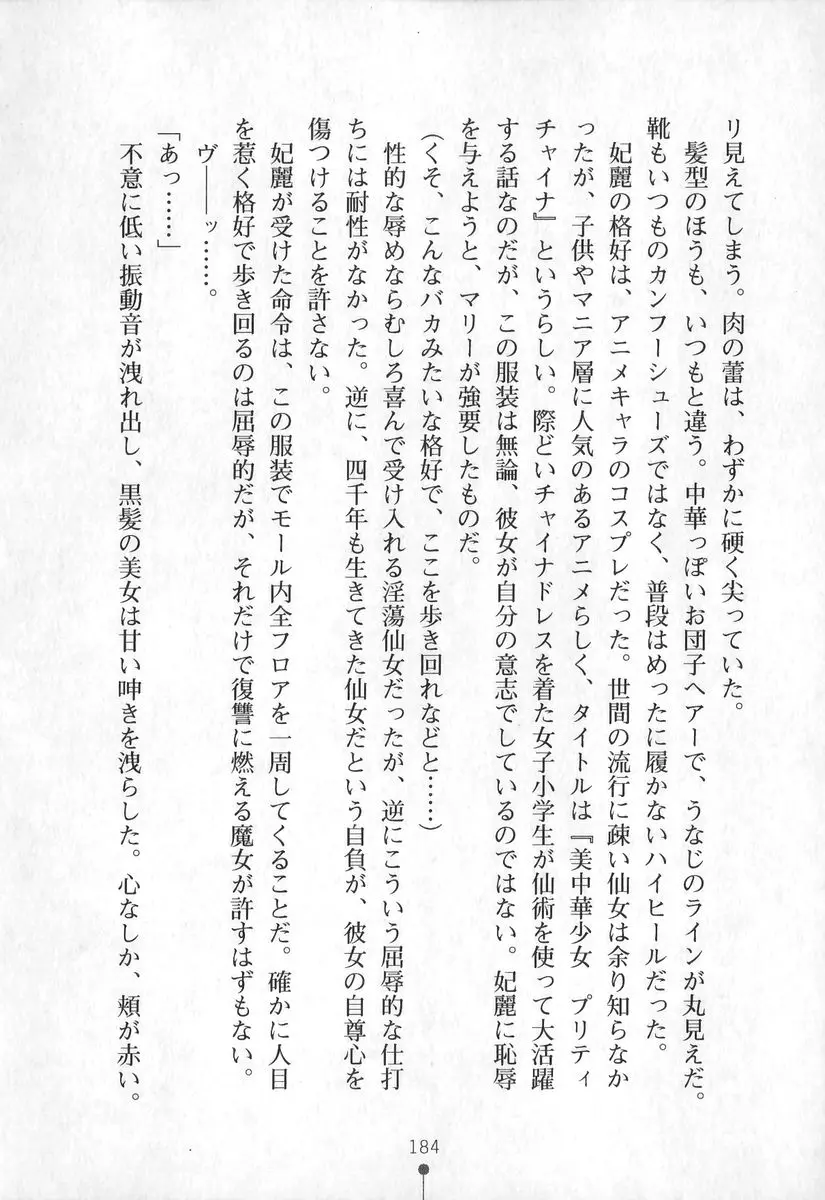 リ見えてしまう。肉の蕾は、わずかに硬く尖っていた。
髪型のほうも、いつもと違う。中華っぽいお団子ヘアーで、うなじのラインが丸見えだ。
靴もいつものカンフーシューズではなく、普段はめったに履かないハイヒールだった。
妃麗の格好は、アニメキャラのコスプレだった。世間の流行に疎い仙女は余り知らなか
ったが、子供やマニア層に人気のあるアニメらしく、タイトルは『美中華少女　プリティ
チャイナ』というらしい。際どいチャイナドレスを着た女子小学生が仙術を使って大活躍
する話なのだが、この服装は無論、彼女が自分の意志でしているのではない。妃麗に恥辱
を与えようと、マリーが強要したものだ。
(くそ、こんなバカみたいな格好で、ここを歩き回れなどと……)
性的な辱めならむしろ喜んで受け入れる淫蕩仙女だったが、逆にこういう屈辱的な仕打
ちには耐性がなかった。逆に、四千年も生きてきた仙女だという自負が、彼女の自尊心を
傷つけることを許さない。
妃麗が受けた命令は、この服装でモール内全フロアを一周してくることだ。確かに人目
を惹く格好で歩き回るのは屈辱的だが、それだけで復讐に燃える魔女が許すはずもない。
ヴ――ッ……。
「あっ……」
不意に低い振動音が洩れ出し、黒髪の美女は甘い呻きを洩らした。心なしか、頬が赤い。
184